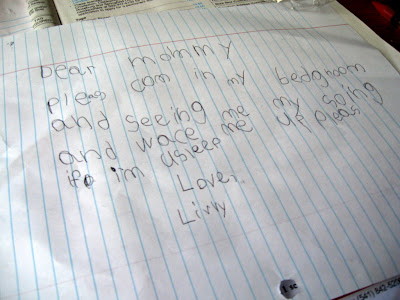 Dear mommy
pleas com in my bedgroom
and seeing me my soing
and wace me up pleas
ife im usleep
Love
Livvy
(541)